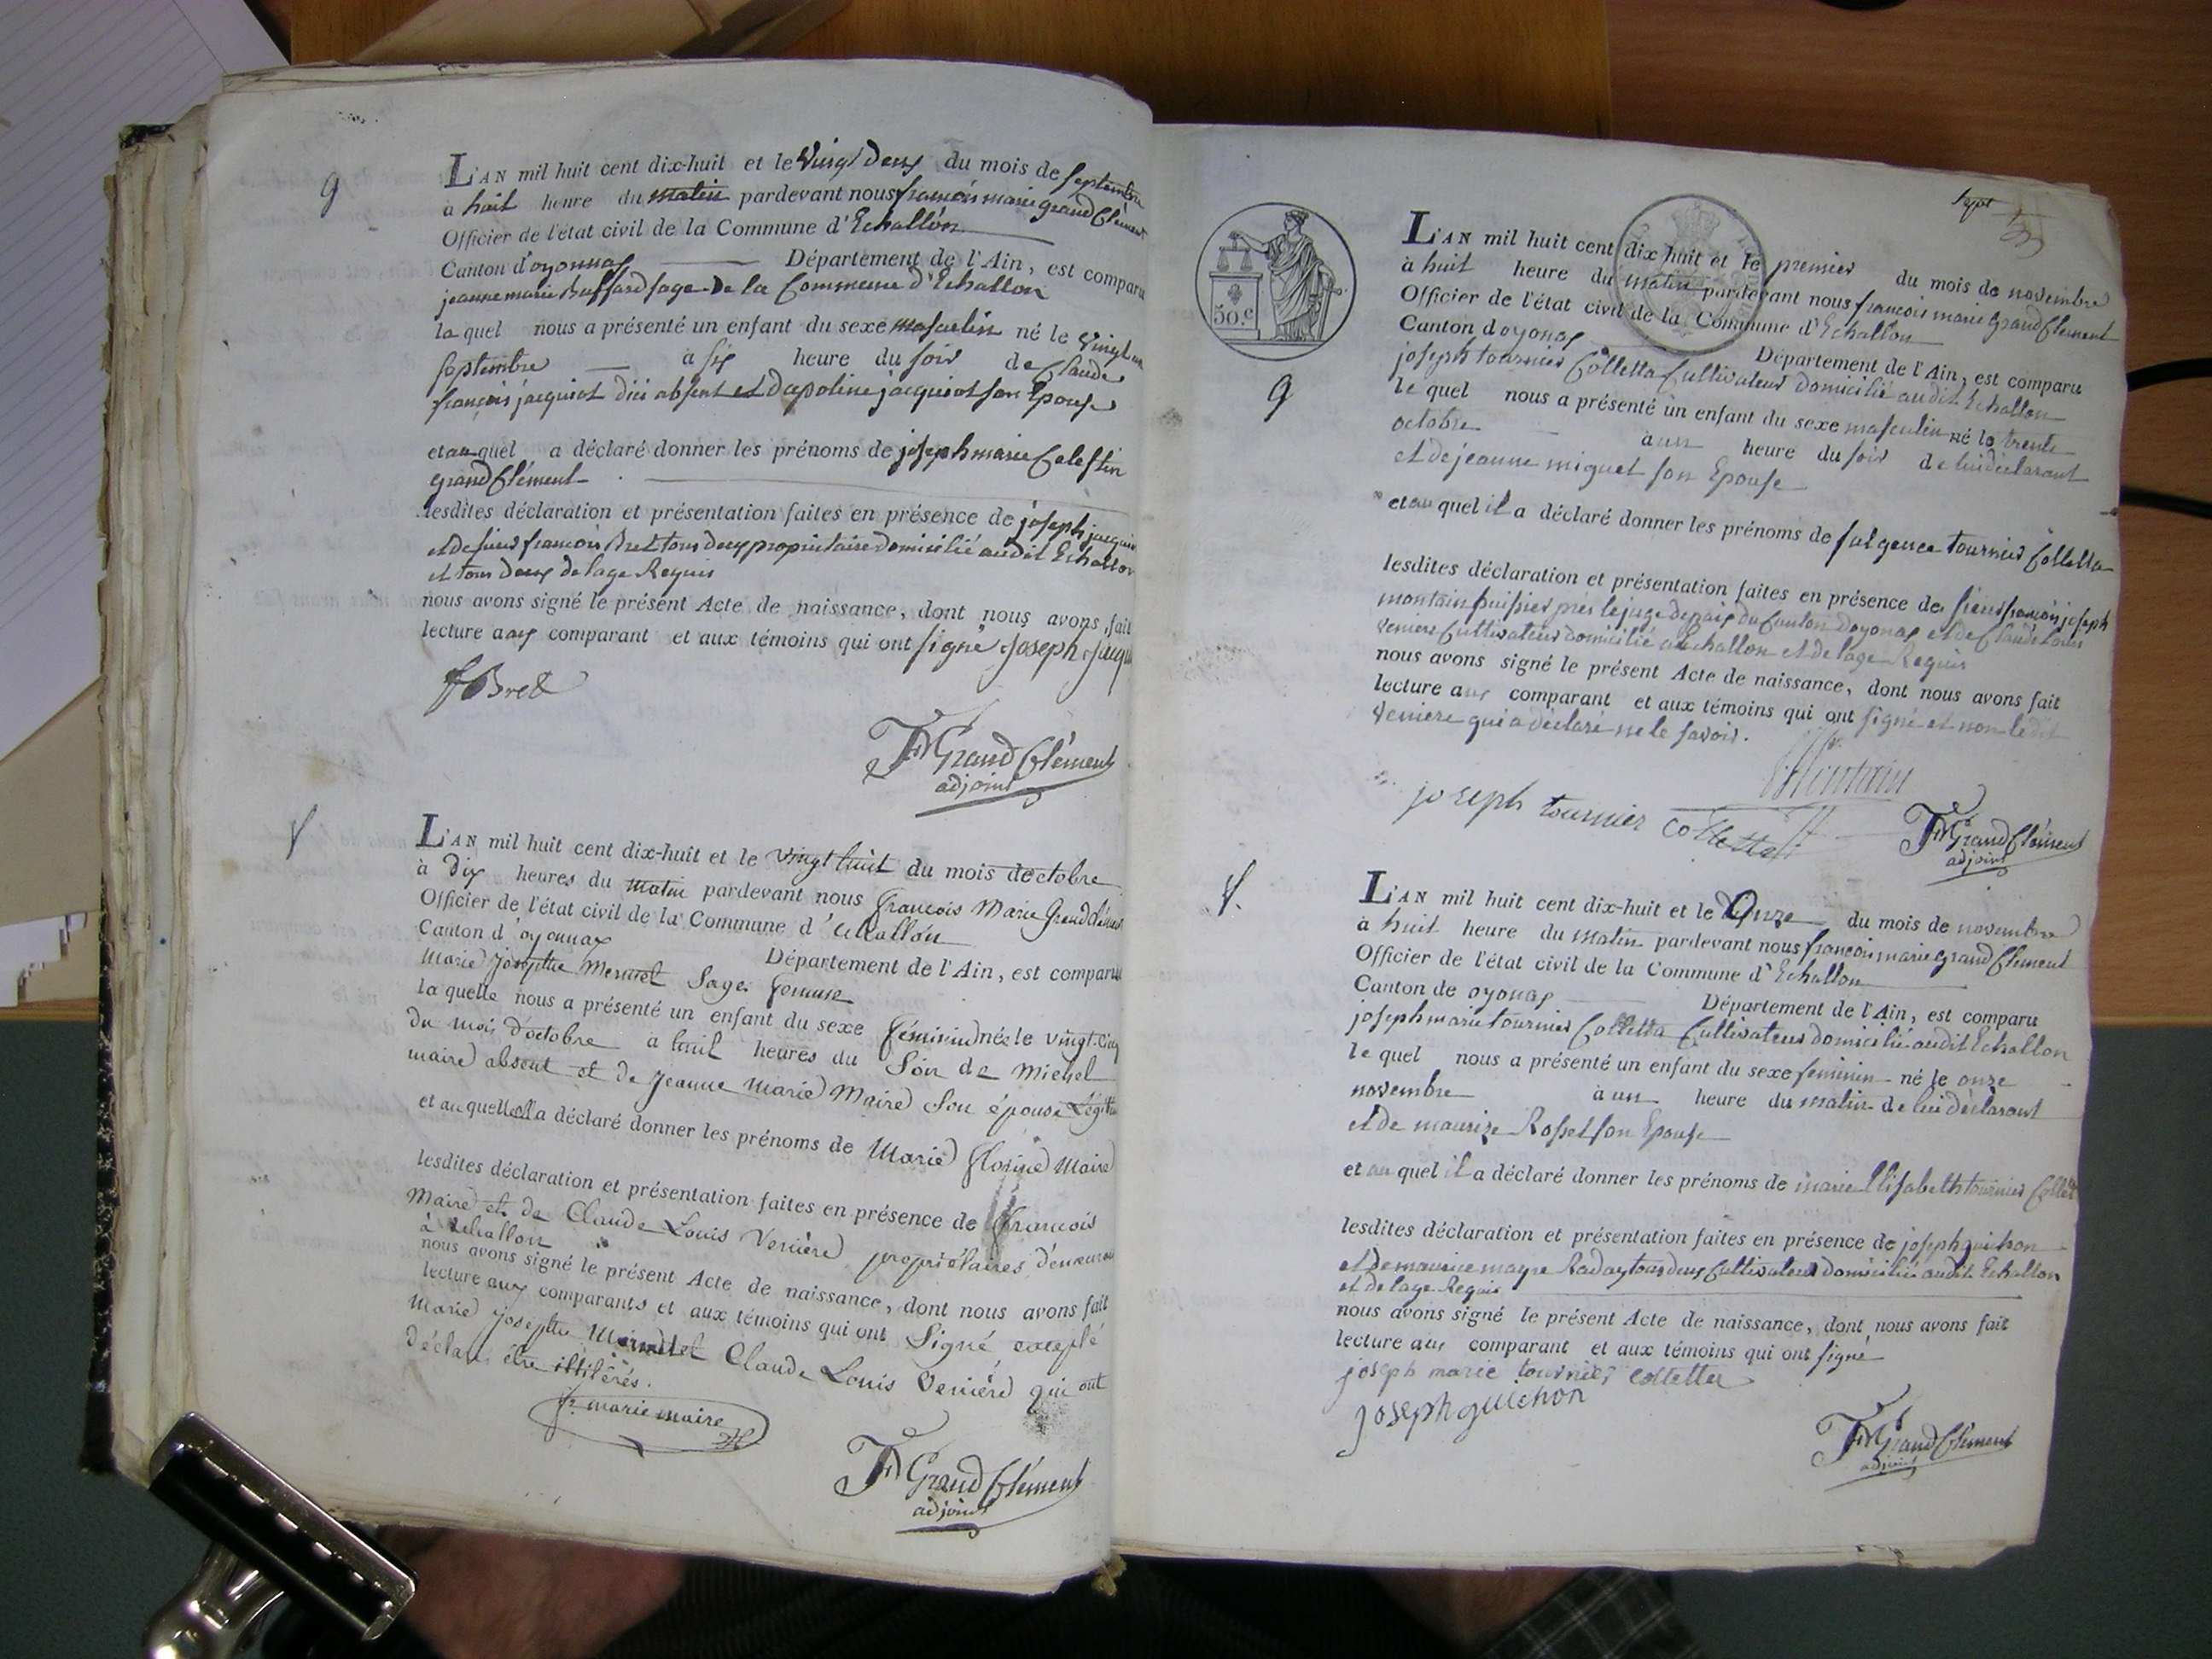 g
L'AN mil huit cent dix-huit et le Vingt Deux du mois de septembre
à huit heure du matin pardevant nous françois marie grandClément
Officier de l'état civil de la Commune d'Echallon
Canton d'oyonnax Département de l'Ain, est comparu
jeanne marie Buffard sage de la Commune d'Echallon
la quel nous a présenté un enfant du sexe masculin né le vingt un
septembre à six heure du soir de Claude
françois jacquiot dit absent et Dapoline jacquiot son Epouse
et auquel a déclaré donner les prénoms de joseph marie Celestin
grandClément
lesdites déclaration et présentation faites en présence de joseph
et de sieur françois Bret tous deux propriétaire domicilié audit Echallon
et tous deux de lage Requis
nous avons signé le présent Acte de naissance, dont nous avons fait
lecture aux comparant et aux témoins qui ont signé Joseph
fBret
FMGrandClément
adjoint
V
L'AN mil huit cent dix-huit et le vingt huit du mois doctobre
à Dix heures du matin pardevant nous françois Marie GrandClément
Officier de l'état civil de la Commune d'Echallon
Canton d'oyonnax Département de l'Ain, est comparu
Marie Josephte Mermet Sage femme
la quelle nous a présenté un enfant du sexe féminin née le vingt-cinq
du mois d'octobre à huit heures du Soir de Michel
maire absent et de Jeanne Marie Maire Son épouse Légitime
et au quel ella a déclaré donner les prénoms de Marie florine Maire
lesdites déclaration et présentation faites en présence de françois
Maire et de Claude Louis Verniere propriétaires demeurant
à Echallon
nous avons signé le présent Acte de naissance, dont nous avons fait
lecture aux comparants et aux témoins qui ont Signé excepté
Marie josephte Mermet Claude Louis Verniere qui ont
déclaré être illitérés.
fs marie maire
FMGrandClément
adjoint
sept
50.c
g
L'AN mil huit cent dix huit et le premier du mois de novembre
à huit heure du matin pardevant nous françois marie GrandClement
Officier de l'état civil de la Commune d'Echallon
Canton doyonax Département de l'Ain, est comparu
joseph tournier Colletta Cultivateur domicilié audit Echallon
le quel nous a présenté un enfant du sexe masculin né le trente
octobre à un heure du soir de lui déclarant
et de jeanne miguet son Epouse
et au quel il a déclaré donner les prénoms de fulgence tournier Colletta
lesdites déclaration et présentation faites en présence de sieur françois joseph
montain huissier près le juge de paix du Canton Doyonax et de Claude Louis
verniere Cultivateur domicilié a Echallon et de lage Requis
nous avons signé le présent Acte de naissance, dont nous avons fait
lecture aux comparant et aux témoins qui ont signé et non ledit
verniere qui a déclaré ne le savoir.
Montain
joseph tournier colletta
FMGrandClément
adjoint
V.
L'AN mil huit cent dix-huit et le Onze du mois de novembre
à huit heure du matin pardevant nous françois marie grandClement
Officier de l'état civil de la Commune d'Echallon
Canton de oyonax Département de l'Ain, est comparu
joseph marie tournier Colletta Cultivateur domicilié audit Echallon
le quel nous a présenté un enfant du sexe feminin né le onze
novembre à un heure du matin de lui déclarant
et de maurize Rosset son Epouse
et au quel il a déclaré donner les prénoms de marie Elisabeth tournier Collet
lesdites déclaration et présentation faites en présence de joseph guichon
et de maurice mayre Raday tous deux Cultivateur domicilié audit Echallon
et de lage Requis
nous avons signé le présent Acte de naissance, dont nous avons fait
lecture aux comparant et aux témoins qui ont signé
joseph marie tournier colletta
joseph guichon
FMGrandClément
adjoint